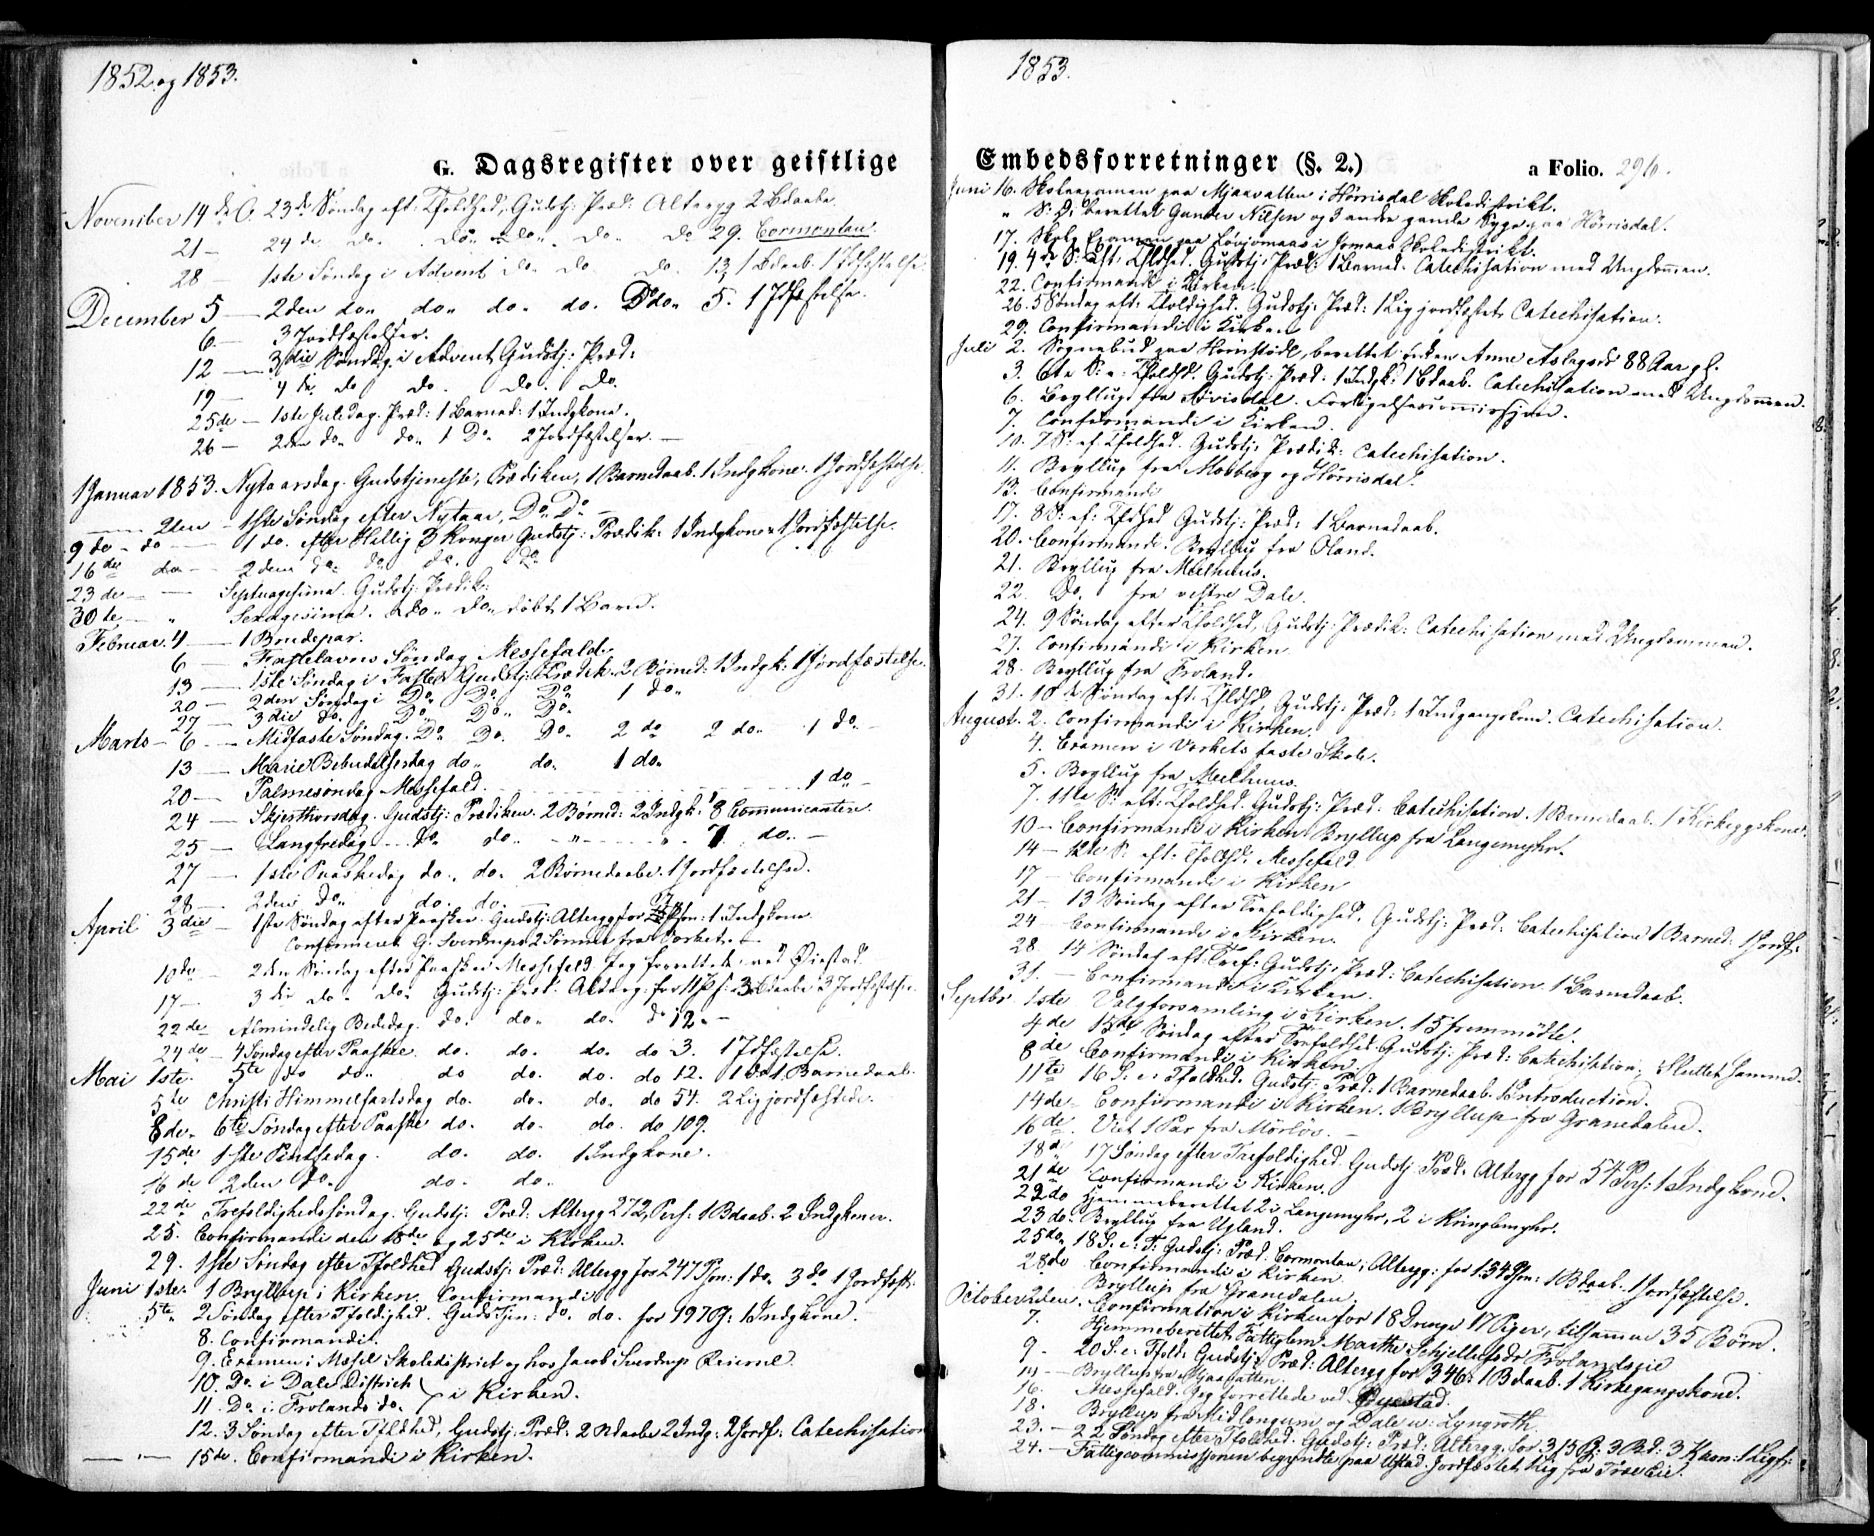 1852 og 1853.
G. Dagsregister over geistlige
November 14de C. 23de Søndag eft: Tfoldhed, Gudstj: Præd: Altergg 2 Bdaabe.
21 — 24de do. do do. do do 29. Cormontan.
28 — 1ste Søndag i Advent do do do. 13, 1 Bdaab. 1 Jdfæstelse.
December 5 — 2den do do do. do. Do do 5. 1 Jdfæstelse.
6. — 3 Jordfæstelser.
12 — 3die Søndag i Advent Gudstj: Præd:
19 — 4de do do do. do.
25de — 1ste Juledag. Præd: 1 Barned: 1 Indgkone.
26 — 2den do. do. 1 Do 2 Jordfæstelser. —
1 Januar 1853. Nytaarsdag. Gudstjeneste, Prædiken, 1 Barnedaab. 1 Indgkone. 1 Jordfæstelse.
2den — 1ste Søndag efter Nytaar, Do. Do
9 do — do — 1 do. efter Hellig 3 Konger Gudstj: Prædik: 1 Indgkone 1 Jordfæstelse.
16de do — 2den do do do. do
23de — Septuagesima. Gudstj: Prædik:
30te — " Sexagesima. do do døbt 1 Barn.
Februar. 4 — 1 Brudepar.
6 Fastelavns Søndag Messefald.
13 — 1ste Søndag i Faste Gudstj: Prædik. 2 Børned: 1 Indgk: 1 Jordfæstelse.
20 — 2den Søndag i Do Do Do 1 do
27 — 3die do. Do Do Do.
Marts — 6 — Midfaste Søndag. Do Do. Do 2 do 2 do. 1 do —
13 — Marie Bebudelsesdag do do. 1 do.
20 — Palmesøndag Messefald. 1 do —
24 — Skjærthorsdag. Gudstj: Prædiken. 2 Børned: 2 Indgk: 8 Communicanter.
25 — Langfredag — do do. " " 7 do. —
27 — 1ste Paaskedag do. do. 2 Børnedaabe. 1 Jordfæstelse.
28 — 2den Do do do.
April 3die — 1ste Søndag efter Paaske. Gudstj: Altergg for Psn: 1 Indgkone
Confirmeret G. Sverdrups 2 Sønner fra Verket. —
10de — 2den Søndag efter Paaske Messefald Jeg forrettede ved Øiestad.
17 — 3die do. do. Gudstj: Præd: Altergg: for 11 Ps: 3 Bdaabe 3 Jordfæstelser.
22de Almindelig Bededag. do: do. do. do 12. —
24de — 4 Søndag efter Paaske. do. do. do. do 3. 1 Jdfæstelse.
Mai 1ste. 5te do do. do do. do. do 12. 1 do 1 Barnedaab.
5te Christi Himmelfartsdag do. do. do. do 54. 2 Lig jordfæstede.
8de. 6te Søndag efter Paaske do. do. do. do 109.
15de 1ste Pintsedag. do. do. 1 Indgkone.
16de 2den do. do. do.
22de Trefoldighedssøndag. Gudstj: Præd: Altergg 272 Pers: 1 Bdaab. 2 Indgkoner.
25. Confirmandi den 18de og 25de i Kirken.
29. 1ste Søndag efter Tfoldhed Gudstj: Præd: Altergg for 247 Psn: 1 do. 3 do 1 Jordfæst:
Juni 1ste. 1 Bryllup i Kirken. Confirmandi
5te 2 Søndag efter Tfoldighed. Guds Tjen: do. do. for 197 P: 1 Indgkone.
8. Confirmandi.
9. Examen i Mæsel Skoledistrict og hos Jacob Sverdrup Reiersl.
10. Do. i Dale District
11. Do i Frolands do. } i Kirken.
12. 3 Søndag efter Tfldhed, Gudstj: Præd: 2 Bdaabe 2 Indg: 2 Jordf: Catechisation
15de. Confirmandi i Kirken.
1853.
Embedsforretninger (§. 2.) a Folio. 296.
Juni 16. Skoleexamen paa Mjaavatten i Hørrisdal Skoledistrikt.
" S: D: berettet Gunder Nilsen og 3 andre gamle Syge paa Hørrisdal.
17. Skole Examen paa Løvjomaas i Jomaas Skoledistrikt.
19. 4de S: Eft: Tfldhed. Gudstj: Præd: 1 Barned. Catechisation med Ungdommen.
22. Confirmandi i Kirken.
26. 5 Søndag eft: Tfoldighed. Gudstj: Præd: 1 Lig jordfæstet. Catechisation.
29. Confirmandi i Kirken.
Juli 2. Sognebud paa Heimstødl, berettet Enken Anne Aslagsdr 88 Aar gl.
3. 6te S: e: Tfoldhd. Gudstj: Præd: 1 Indgk: 1 Bdaab. Catechisation med Ungdommen.
6. Bryllup fra Hørrisdal. Forligelsescommission.
7. Confirmandi i Kirken.
10. 7 S: ef. Tfoldhed. Gudstj: Prædik: Catechisation.
11. Bryllup fra Mobberg og Hørrisdal.
13. Confirmandi
17. 8 S: ef: Tfldhed Gudstj: Præd: 1 Barnedaab.
20. Confirmandi. Bryllup fra Øland.
21. Bryllup fra Mælhuus.
22. Do. fra vestre Dale.
24. 9 Søndag efter Tfoldhed, Gudstj: Prædik: Catechisation med Ungdommen.
27. Confirmandi i Kirken
28. Bryllup fra Froland.
31. 10de Søndag eft. Tfldhd, Gudstj: Præd: 1 Indgangskone. Catechisation.
August. 2. Confirmandi i Kirken.
4. Examen i Verkets faste Skole.
5. Bryllup fra Mælhuus.
7. 11te S: eft: Tfoldhed. Gudstj: Præd. Catechisation. 1 Barnedaab. 1 Kirkeggskone.
10 — Confirmandi i Kirken. Bryllup fra Langemyhr.
14 — 12te S: eft: Tfoldhd. Messefald.
17 — Confirmandi i Kirken
21 — 13 Søndag efter Trefoldighed. Gudstj: Præd: Catechisation 1 Barned: 1 Jordf:
24 — Confirmandi i Kirken.
28 — 14 Søndag eft: Tref: Gudstj: Præd: Catechisation 1 Barnedaab.
31. — Confirmandi i Kirken.
Septbr 1ste Valgforsamling i Kirken. 15 fremmødte.
4de 15de Søndag efter Trefoldhed. Gudstj: Præd: Catechisation; Sluttet Sammd.
8de Confirmandi i Kirken.
11te 16 S: e: Tfoldhd. Gudstj: Præd: 1 Barnedaab. 1 Introduction.
14de. Confirmandi i Kirken. Bryllup fra Granedalen.
16de. Viet 1 Par fra Mørløs. —
18de 17 Søndag efter Trefoldighed. Gudstj: Præd: Altergg for 54 Pers: 1 Indgkone.
21de Confirmandi i Kirken.
22do Hjemmeberettet 2 i Langemyhr, 2 i Kringlemyhr.
23do. Bryllup fra Ugland.
25do. 18 S: e: T: Gudstj: Præd. Cormontan; Altergg: for 134 Psn: 1 Bdaab. 1 Jordfæstelse.
28de Confirmandi i Kirken.
October 2den. Bryllup fra Granedalen.
7. Confirmation i Kirken for 18 Drenge 17 Piger, tilsammen 35 Børn.
Hjemmeberettet Fattiglem Marthe Schjellufsdr Frolandseie
9 — 20 S: e: Tfold: Gudstj: Præd: Altergg for 346: 1 Bdaab. 1 Kirkegangskone.
14 — Bryllup fra Mjaavatten.
16. Messefald. Jeg forrettede ved Øyestad.
18. Bryllup fra Midlongum og Dale m: Lyngroth.
23. — 22 Søndag efter Tfoldhed. Gudstj: Præd: Altergg. for 313 P: 3 Bd: 3 Kaon: 1 Ligf:
24. — Fattigcommissionen begyndte paa Ufstad. Jordfæstet Lig fra Trae Eie.